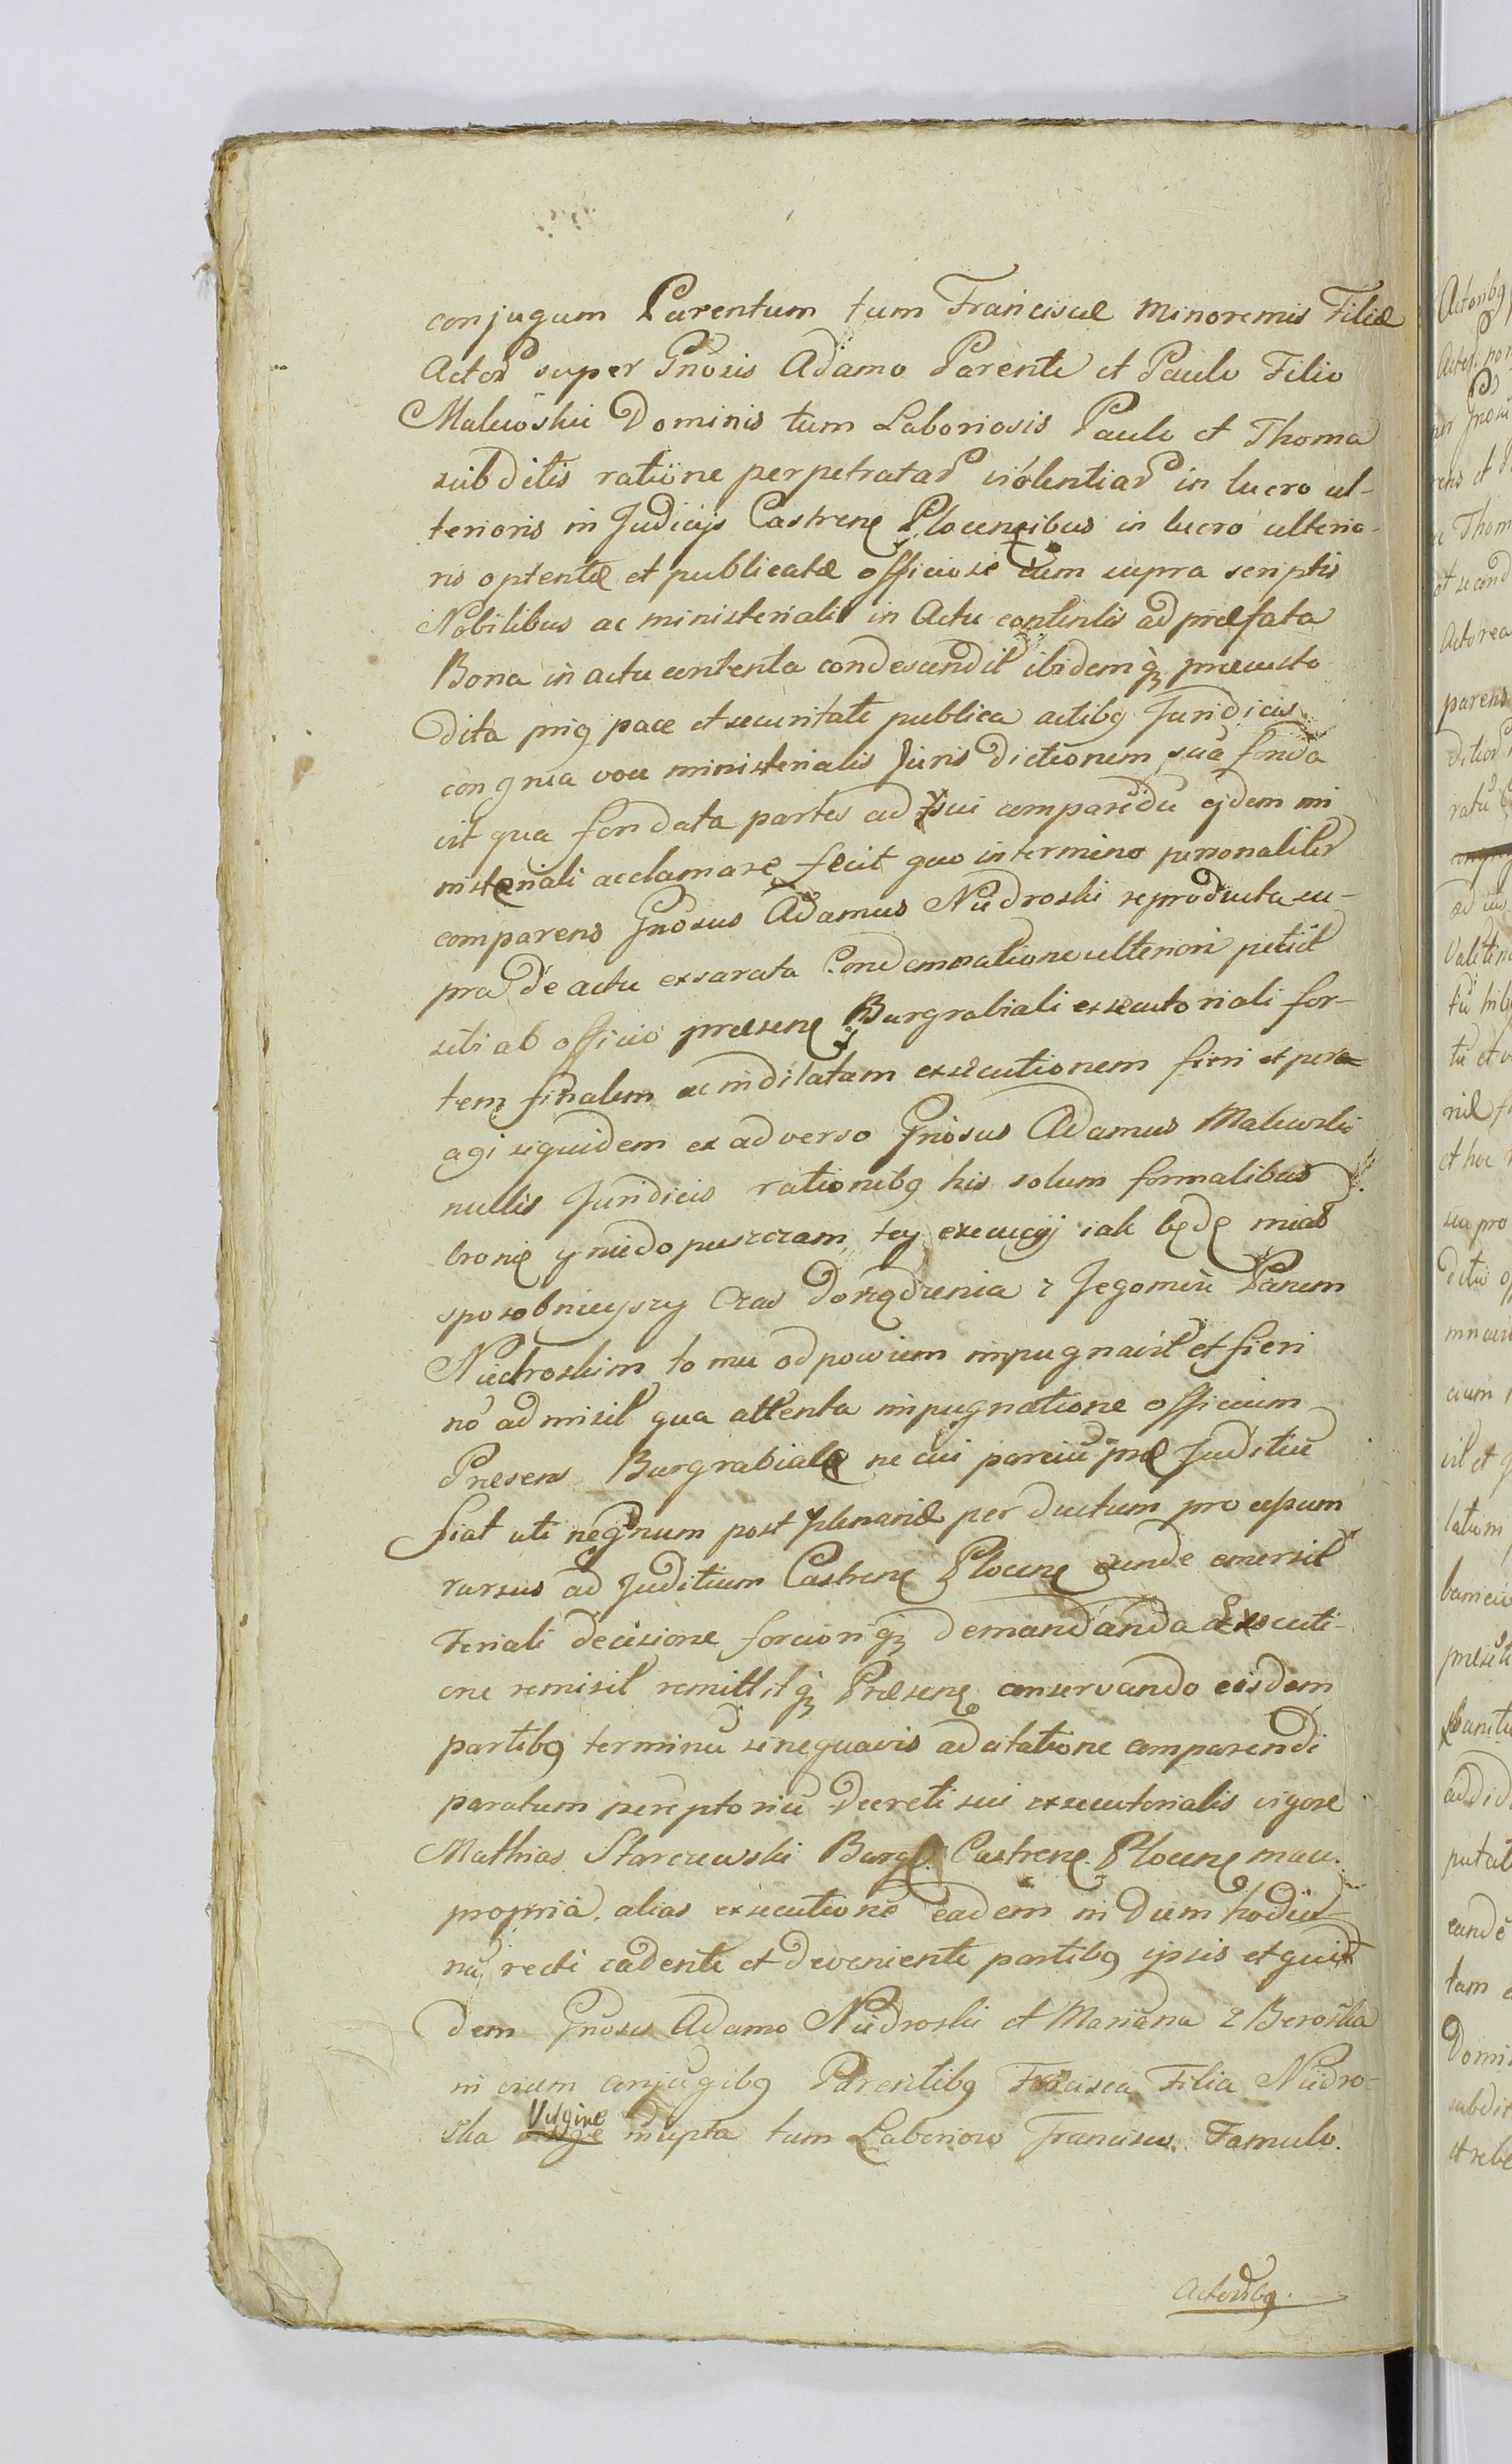 conjugum Parentum tum Franciscæ Minorennis Filiæ
Actor super Gnosis Adamo Parente et Paulo Filio
Maluoskie Dominis tum Laboriosis Paulo et Thoma
subditis ratione perpetratar violentiar in lucro ul-
terioris in Judicijs Castrenẽ Plocensibus in lucro ulterio-
ris optentæ et publicatæ officiose cum supra scriptis
Nobilibus ac ministeriali in Actu contentis ad præfata
Bona in actu contenta condescendit ibidemq præcusto
dita priq pace et securitate publica actibq Juridicis
congrua voce ministerialis Juris Dictionem sua fonda
vit qua fondata partes ad sui comparẽdũ ejdem mi
nisteriali acclamare fecit quo in termino personaliter
comparens Gnosus Adamus Niedroski reproducta su-
pra de actu exarata Condemnatione ulteriori petiit
sibi ab officio præsenẽ Burgrabiali executoriali for-
tem finalem ac indilatam executionem fieri et pera-
agi siquidem ex adverso Gnosus Adamus Maluoski
nullis Juridicis rationibq his solum formalibus
bronię y niedopuszczam tey execucyi iak będę miał
sposobnieyszy czas do rządzenia z Jegomscią Panem
Niedroskim to mu odpowiem impugnavit et fieri
nõ admisit qua attenta impugnatione officium
Præsens Burgrabiale ne cui parciũ præ Juditiũ
fiat uti negnum post plenariæ per ductum processum
rursus ad Juditium Castrenẽ Plocenẽ eunde emersit
teriali decisione forcioriq demandanda Executi-
one remisit remittitq Præsenẽ conservando eisdem
partibq terminũ sine quavis adcitatione comparendi
paratum pereptoriũ Decreti sui executorialis vigore
Mathias Starczewski Burg. Castrenẽ Plocenẽ mau.
propria. alias executione eadem in Diem hodier-
nũ recti cadenti et deveniente partibq ipsis et qui
dem Gnosis Adamo Niedroski et Marianna z Beroska
in eium conjugibq Parentibq Frcisca Filia Niedro-
ska Virgine inupta tum Laborioso Francisco Famulo.
Actoribq.